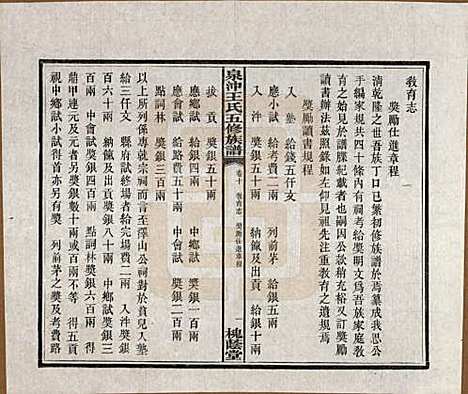 教育志 一
獎勵仕進章程
清乾隆之世吾族丁口已繁初修族譜於焉纂成我思公
手編家規四十條內有祠考給獎明文爲吾族家庭教育
之嚆矢嗣於譜牒紀載者也嗣因公款稍充裕又訂獎勵
讀書辦法茲照錄如左仰見祖先注重教育之遺規焉
獎勵讀書規程
入塾 給錢五仟文
應小試 給考費二兩 列前茅 給銀五兩
入泮 獎銀五十兩 納餼及出貢 給銀十兩
泉沖王氏五修族譜
卷十 教育志 獎勵仕進章程
一 槐蔭堂
拔貢 獎銀五十兩
應鄉試 給銀二十兩 中鄉試 獎銀一百兩
應會試 給路費五十兩 中會試 獎銀二百兩
點詞林 獎銀三百兩
以上所列係專就宗祠而言而至澤山公祠對於貧兒入塾
給三仟文 縣府試終場者給完場費二兩 入泮獎銀
百六十兩 納餼及出貢獎銀八十兩 中鄉試獎銀三
百兩 中會試獎銀四百兩 點詞林獎銀六百兩 中
鼎甲連元及元者另獎銀數十兩或百兩不等 得五貢
視中鄉試小試得首者亦獎 列前茅之獎及考費路